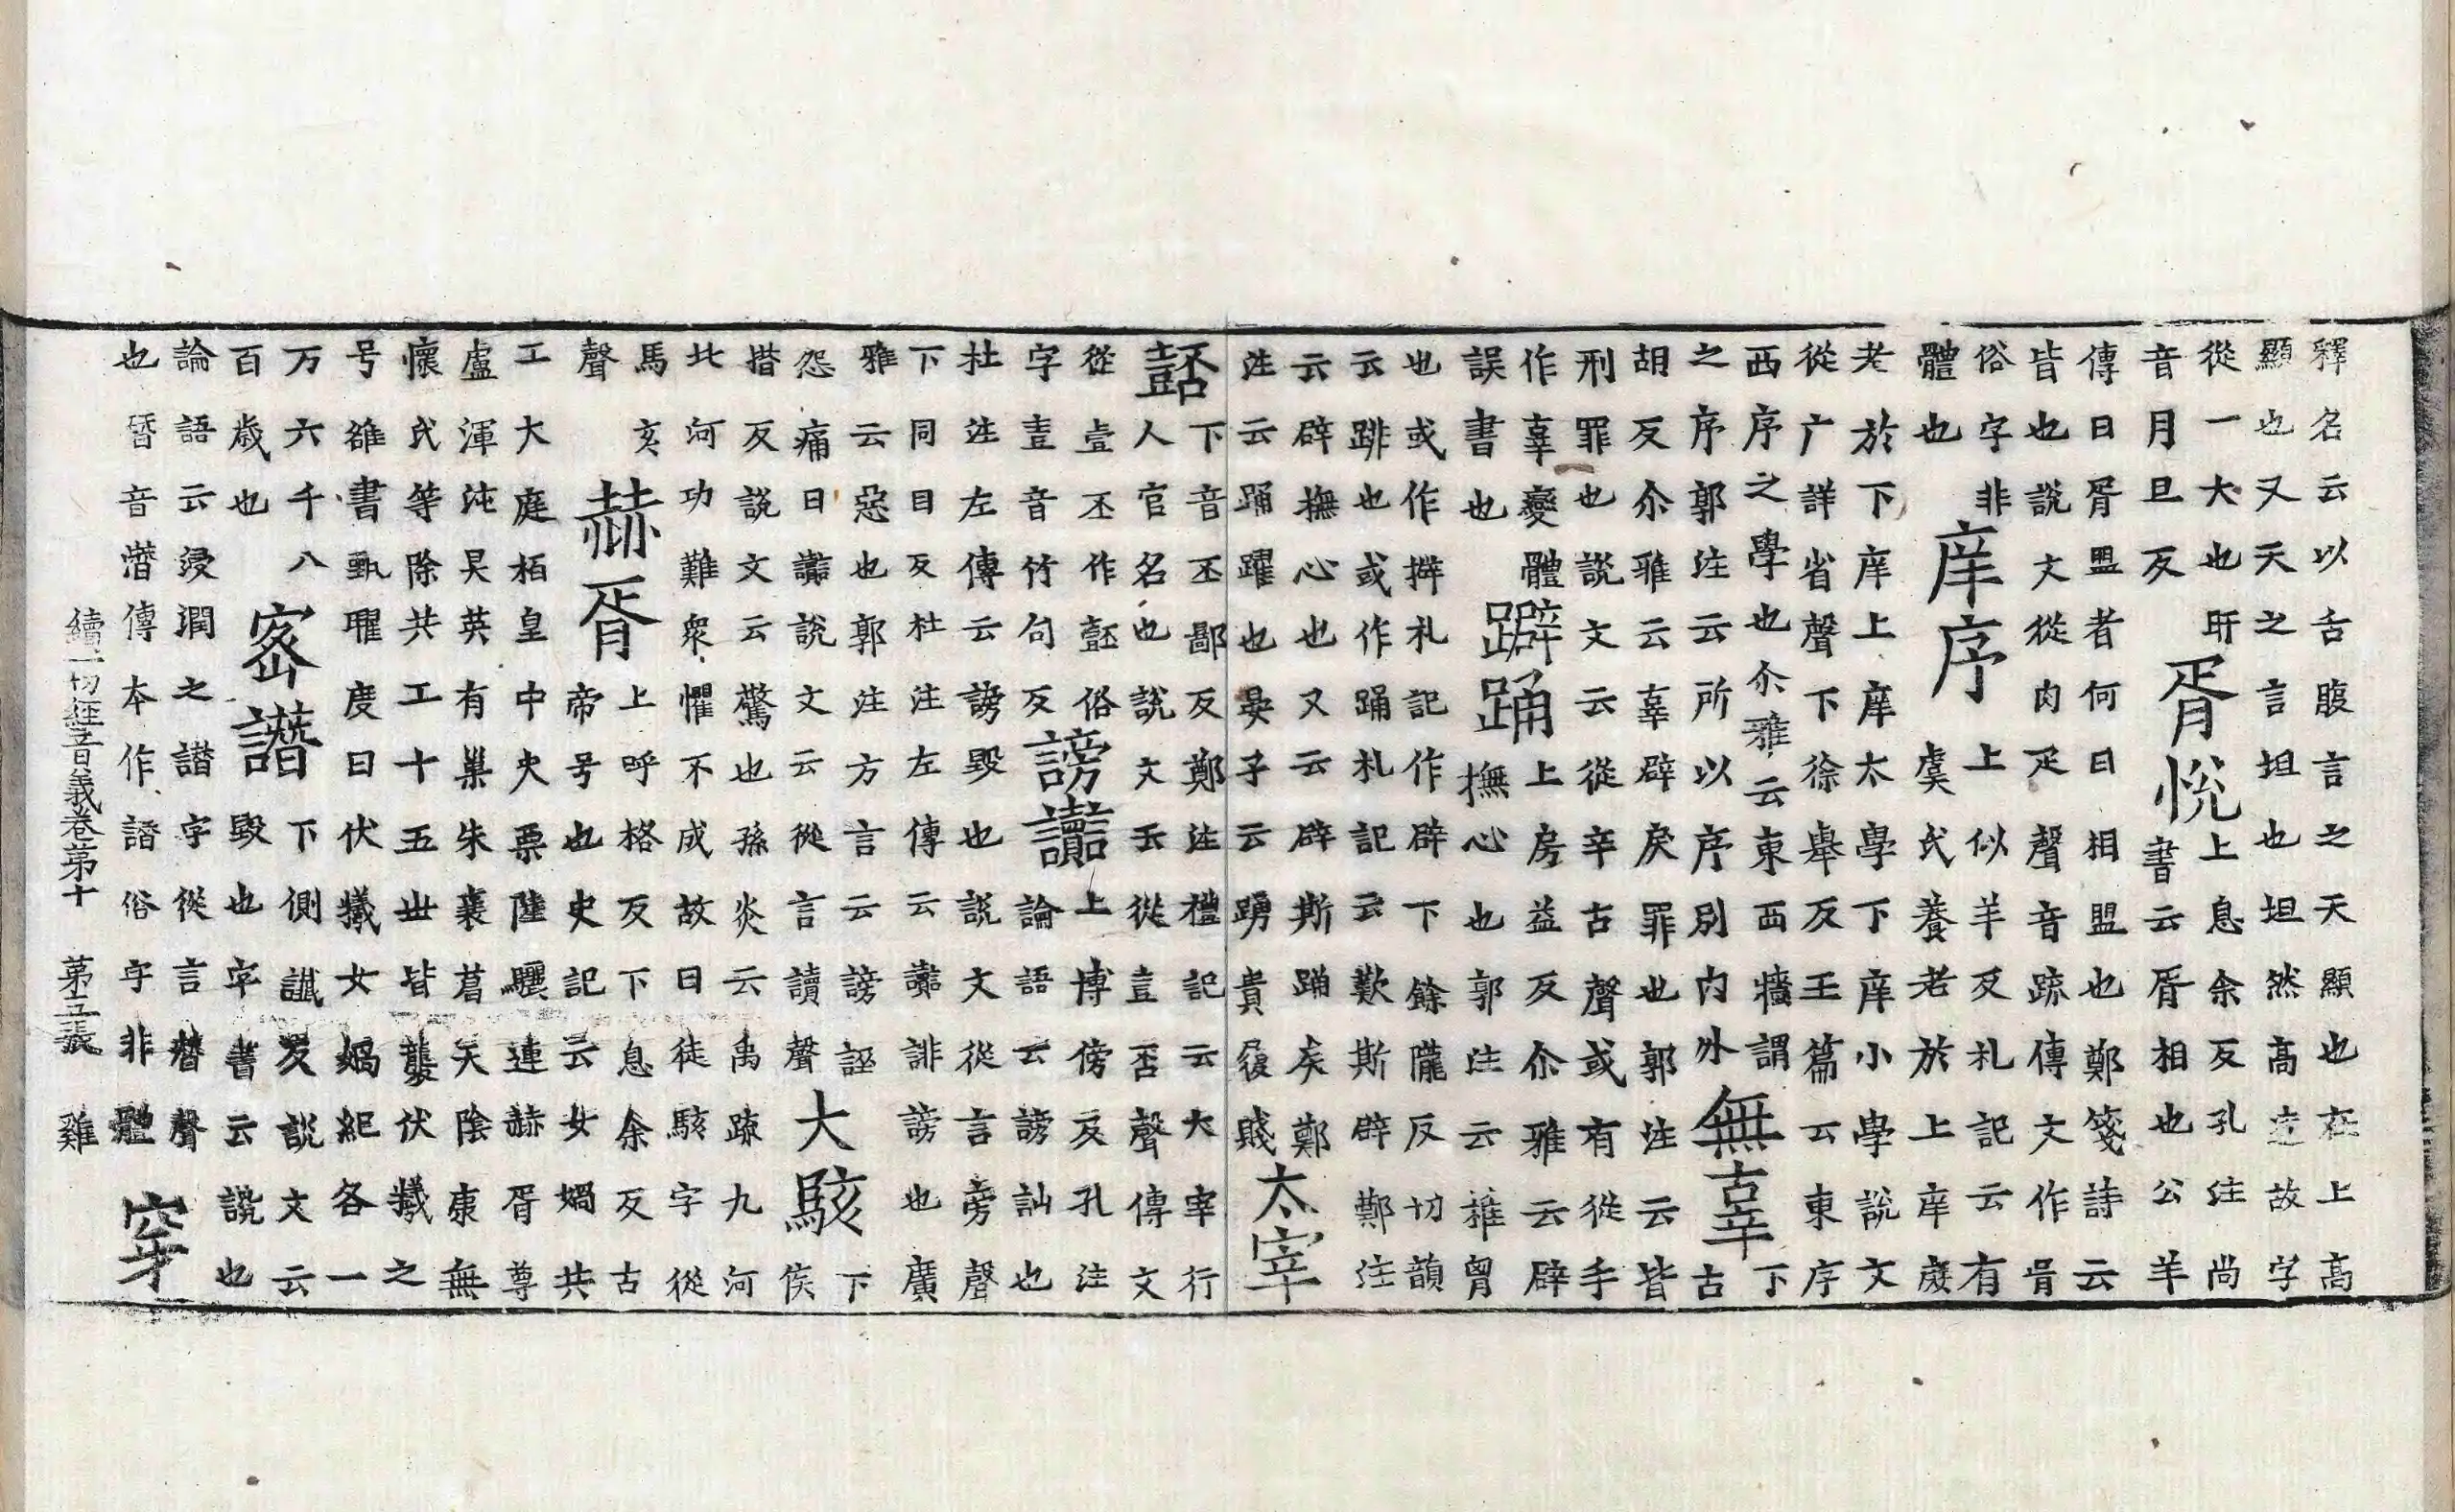 釋名云以舌腹言之天顯也在上高
顯也又天之言坦也坦然高遠故字
從一大也昕
音月旦反
胥悅
上息余反孔注尚
書云胥相也公羊
傳曰胥盟者何曰相盟也鄭箋詩云
皆也說文從肉疋聲音疏傳文作㫺
俗字非
體也
庠序
上似羊反札記云有
虞氏養老於上庠夏
老於下庠上庠太學下庠小學說文
從广詳省聲下徐舉反王篇云東序
西序之學也尒雅云東西牆謂
之序郭注云所以序別內外
無辜
下
古
胡反尒雅云辜辟戾罪也郭注云皆
刑罪也說文云從辛古聲或有從手
作辜變體
誤書也
躃踊
上房益反尒雅云辟
撫心也郭注云椎胷
也或作擗札記作辟下餘隴反切韻
云跳也或作踊札記云歎斯辟鄭注
云辟撫心也又云辟斯踊矣鄭
注云踊躍也晏子云踴貴屨賤
太宰
嚭
下音丕鄙反鄭注禮記云大宰行
人官名也說文玉從壴否聲傳文
從壹丕作噽俗
字壴音竹句反
謗讟
上博傍反孔注
論語云謗訕也
杜注左傳云謗毀也說文從言旁聲
下同目反杜注左傳云讟誹謗也廣
雅云惡也郭注方言云謗誣
怨痛曰讟說文云從言讀聲
大駭
下
侯
揩反說文云驚也孫炎云禹疏九河
北河功難衆懼不成故曰徒駭字從
馬亥
聲
赫胥
上呼格反下息余反古
帝号也史記云女媧共
工大庭栢皇中央栗陸驪連赫胥尊
盧渾沌昊英有巢朱襄葛天陰康無
懷氏等除共工十五世皆襲伏犧之
号雒書甄曜度曰伏犧女媧紀各一
万六千八
百歲也
密譖
下側讖反說文云
毀也字書云讒也
論語云浸潤之譖字從言朁聲
也朁音潛傳本作譛俗字非體
穽
續一切經音義卷苐十　苐五張　雞